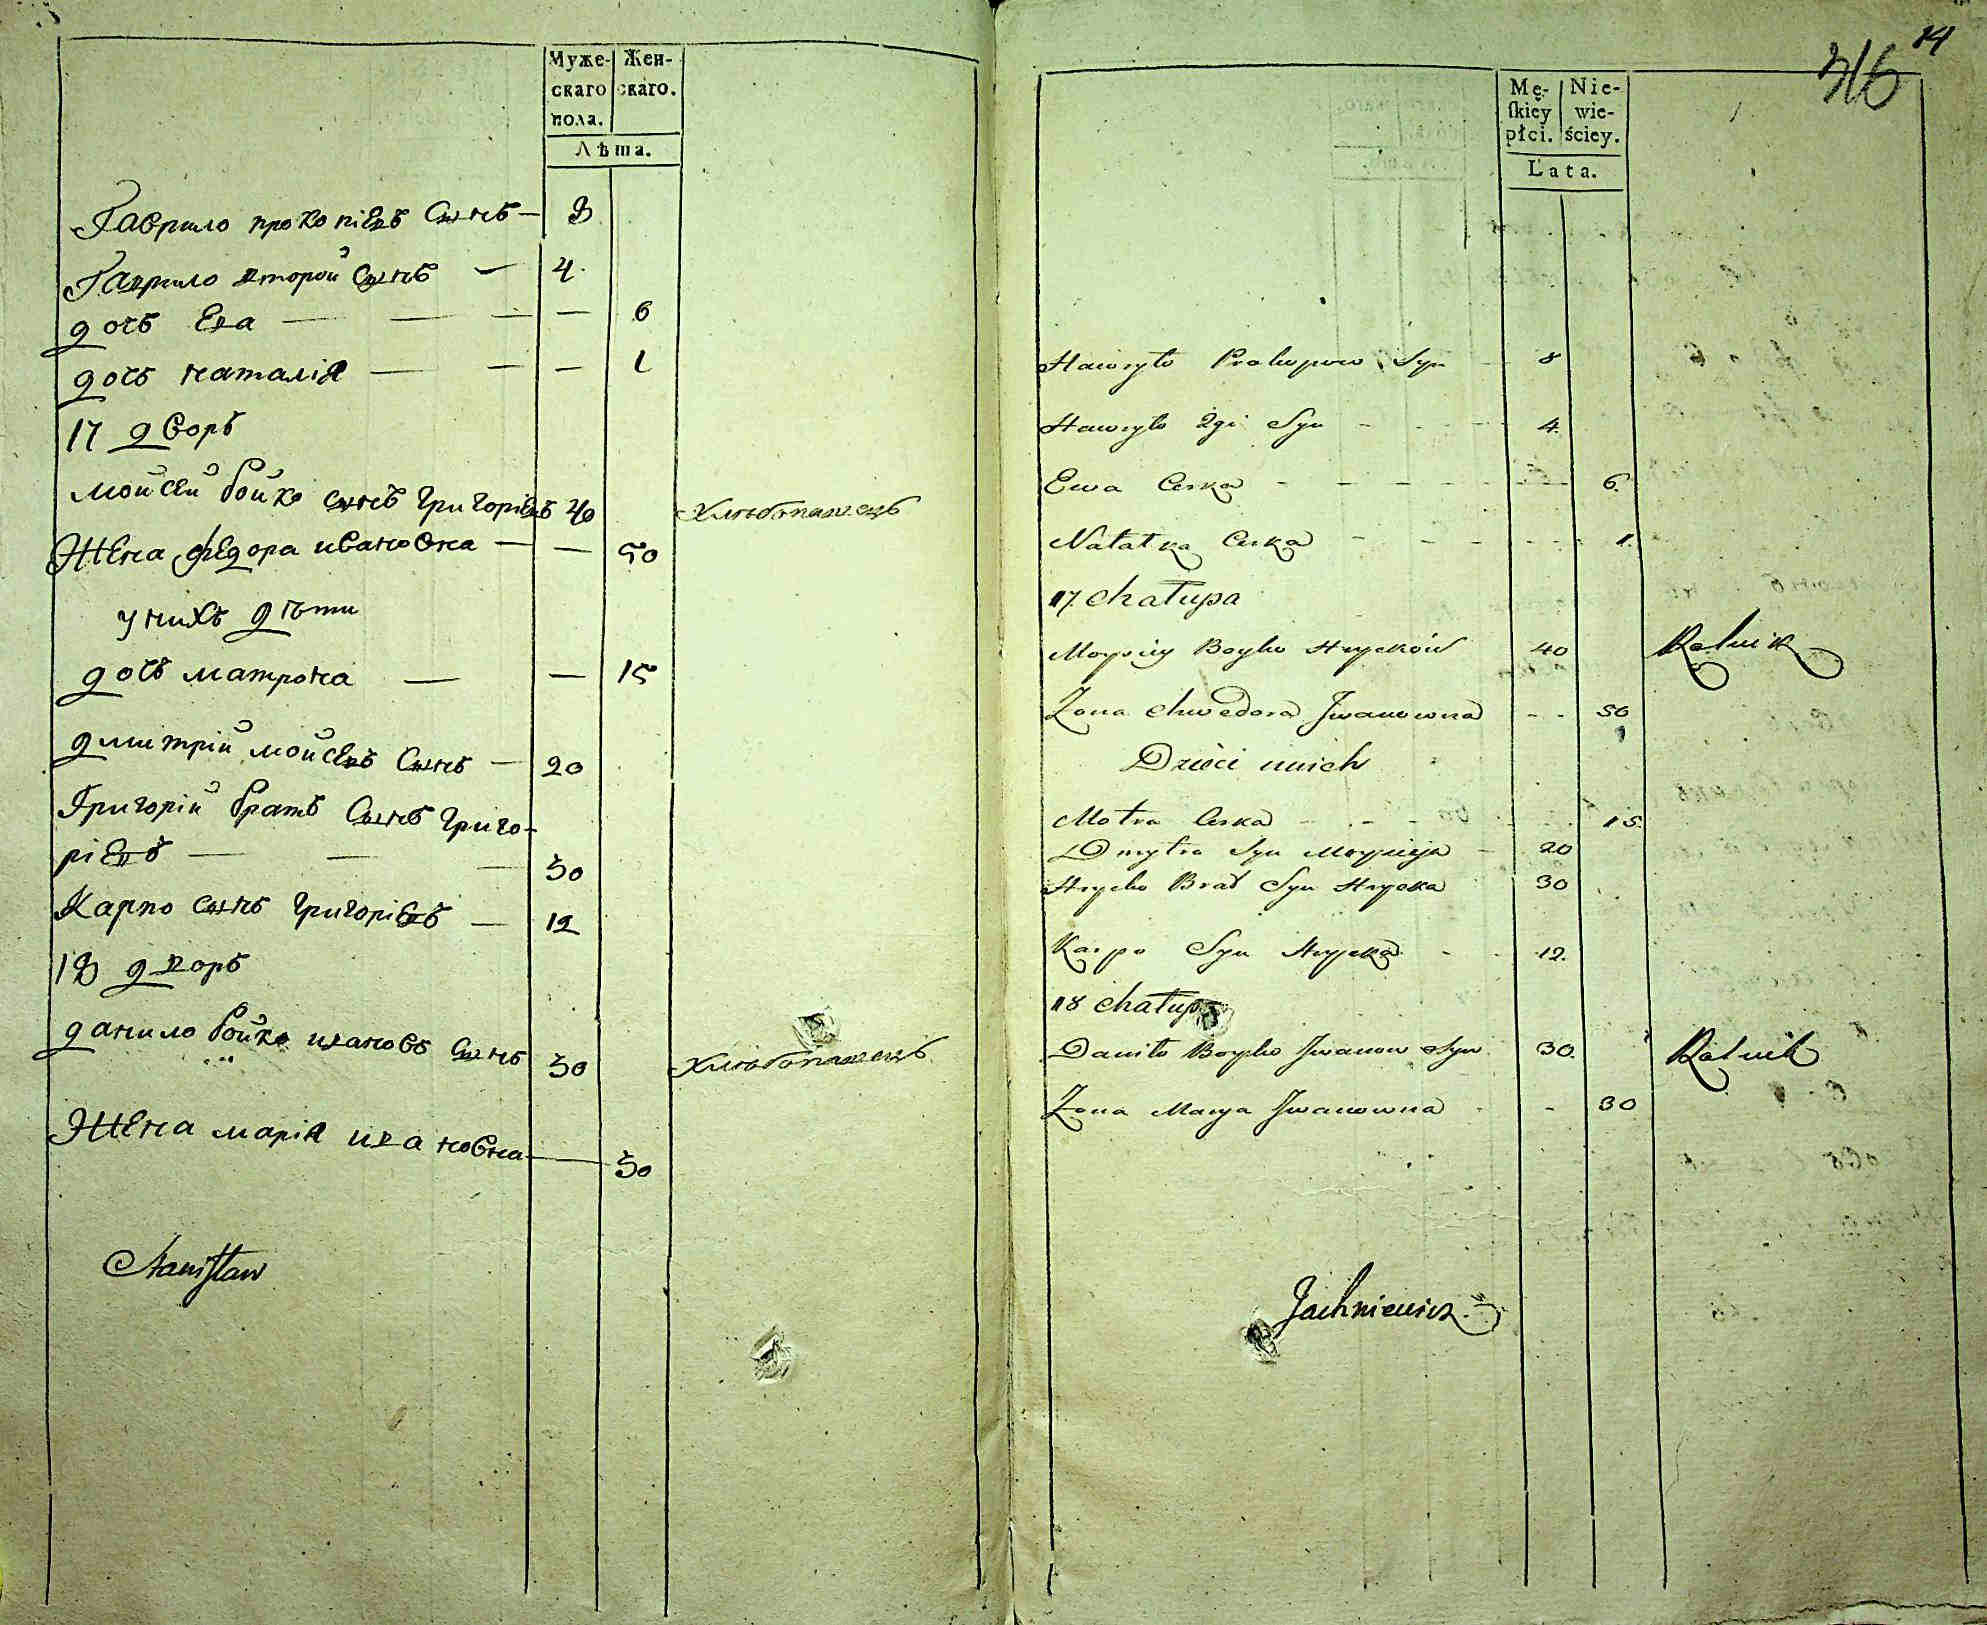 Муже-
скаго
пола.
Жен-
скаго.
Лѣта.
Гаврило прокопіевъ Сынъ — 8
Гаврило второй Сынъ — 4.
дочъ Ева — — — — 6
дочъ наталія — — — 1
17 дворъ
Мойсей бойко сынъ григоріевъ 40 Хлѣбопашецъ
Жена федора ивановна — — 50
у нихъ дѣти
дочъ матрона — — 15
дмитрій мойсѣевъ Сынъ — 20
Григорій братъ Сынъ григо-
ріевъ — — — 30
Карпо сынъ григоріевъ — 12
18 дворъ
данило бойко ивановъ Сынъ 30 Хлѣбопашецъ
Жена марія ивановна — 30
Staniſław
14
316
Mę-
ſkiey
płci.
Nie-
wie-
ściey.
Lata.
Hawryło Prokopow Syn - 8
Hawryło 2gi Syn - - - - 4.
Ewa Corka - - - - - - 6.
Natałka Corka - - - - - - 1.
17. Chałupa
Moysiey Boyko Hryćków 40 Rolnik
Zona Chwedora Jwanowna - - 50
Dzieci unich
Motra Corka - - - - 15.
Dmytro Syn Moysieja - 20
Hryćko Brat Syn Hryćka 30
Karpo Syn Hryćka - - 12.
18 Chałupa
Daniło Boyko Jwanow Syn 30. Rolnik
Zona Marya Jwanowna - - 30
Jachniewicz